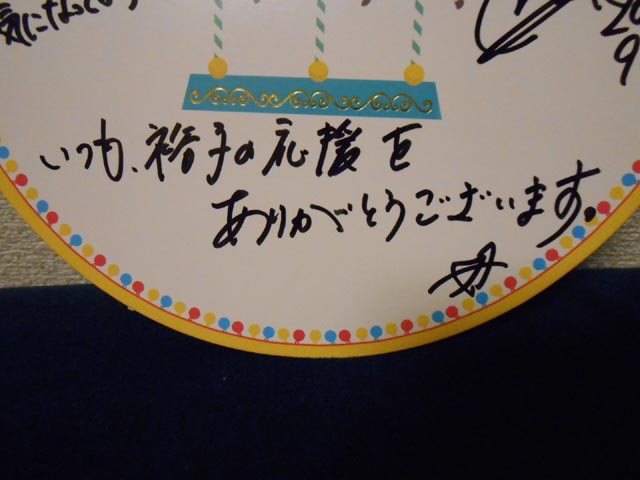 気になって
20
9
いつも、裕子の応援を
ありがとうございます。
母